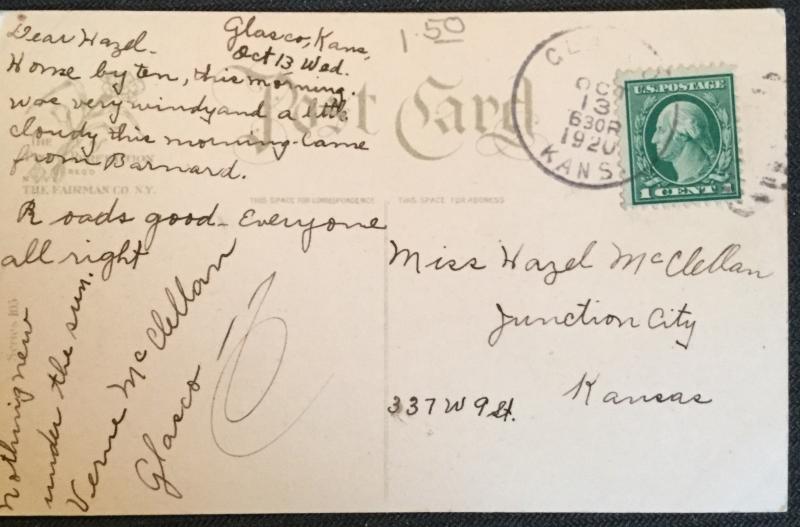 Glasco, Kans,
Oct 13 Wed.
Dear Hazel-
Home by ten, this morning.
was very windy and a little
cloudy this morning. Came
from Barnard.
Roads good - Everyone
all right
nothing new
under the sun.
Verne McClellan
Glasco
Post Card
THE
THE FAIRMAN CO. N.Y.
Series 105
THIS SPACE FOR CORRESPONDENCE
THIS SPACE FOR ADDRESS
1.50
OC
13
630P
1920
KANS
U.S. POSTAGE
1 CENT 1
Miss Hazel McClellan
Junction City
Kansas
337 W 9 St.